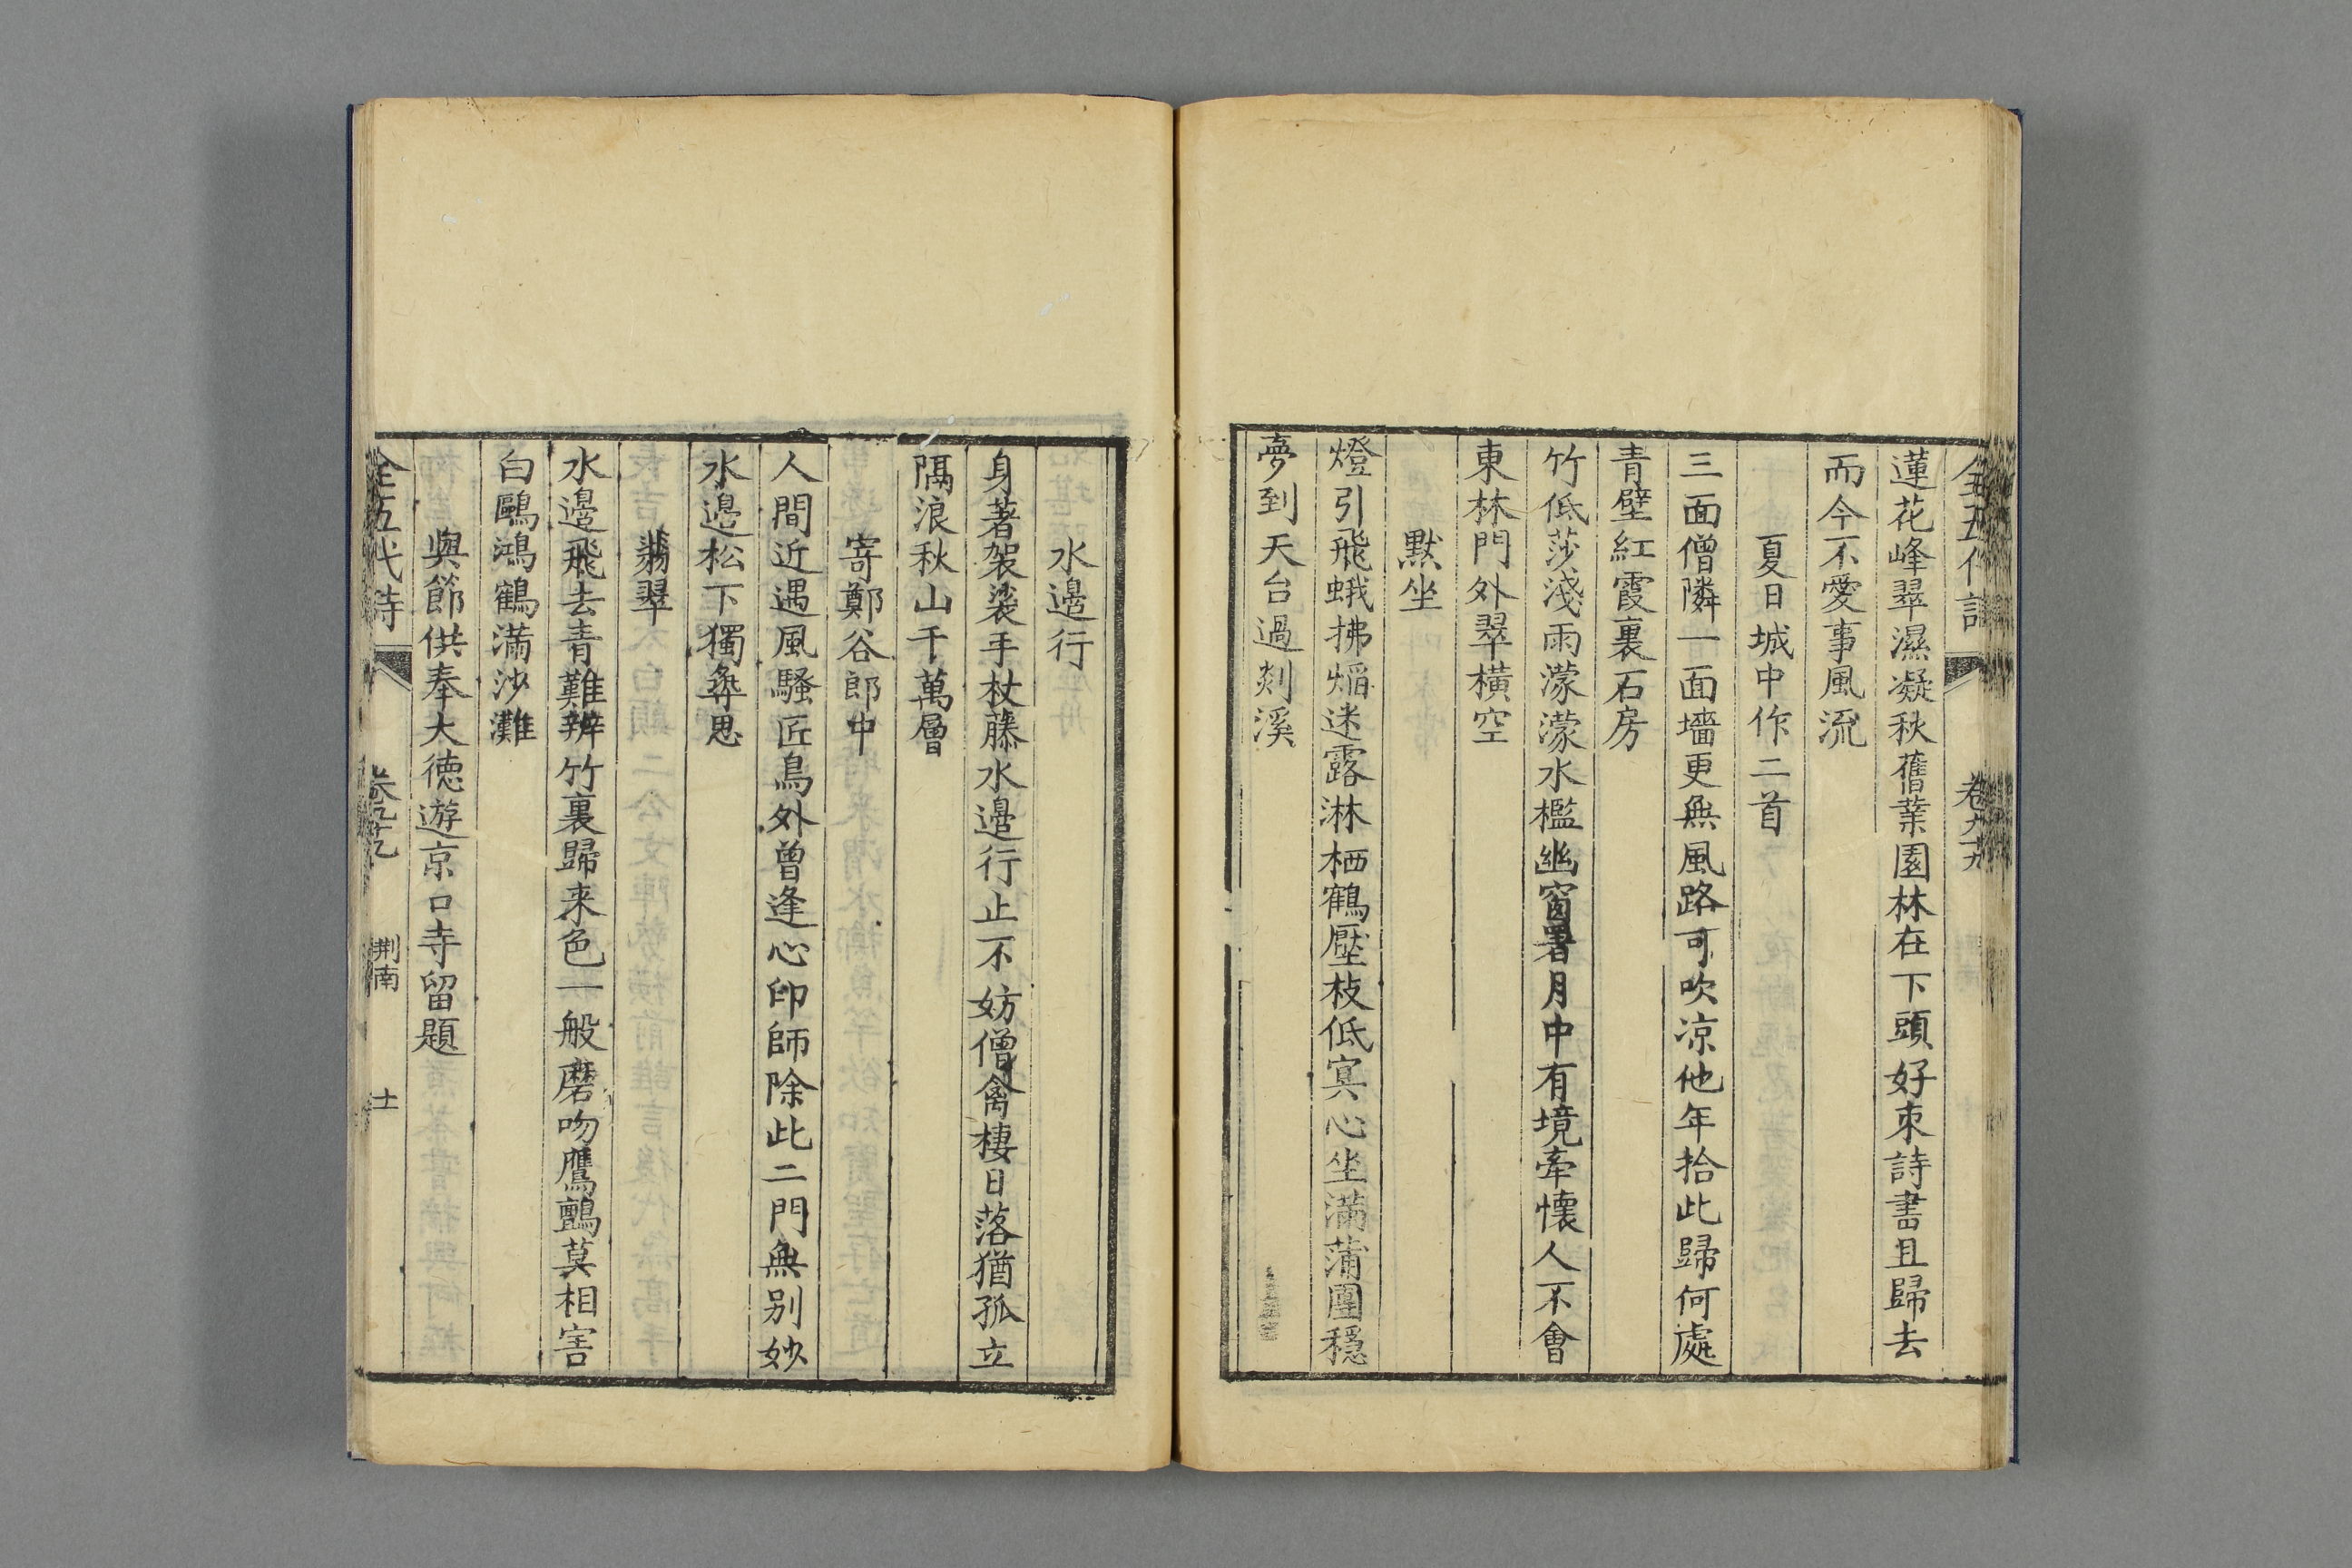 全五代詩
蓮花峰翠濕凝秋舊業園林在下頭好束詩書且歸去
而今不愛事風流
夏日城中作二首
三面僧隣一面墻更無風路可吹凉他年拾此歸何處
青壁紅霞裏石房
竹低莎淺雨濛濛水檻幽窗署月中有境牽懷人不會
東林門外翠橫空
默坐
燈引飛蛾拂焰迷露淋栖鶴壓枝低寞心坐滿蒲團穩
夢到天台過剡溪
水邊行
身著袈裟手杖藤水邊行止不妨僧禽棲日落猶孤立
隔浪秋山千萬層
寄鄭谷郎中
人間近遇風騷匠鳥外曾逢心印師除此二門無別妙
水邊松下獨尋思
翡翠
水邊飛去青難辨竹裏歸来色一般磨吻鷹鸇莫相害
白鷗鴻鶴滿沙灘
與節供奉大德遊京口寺留題
全五代詩
荆南
十一